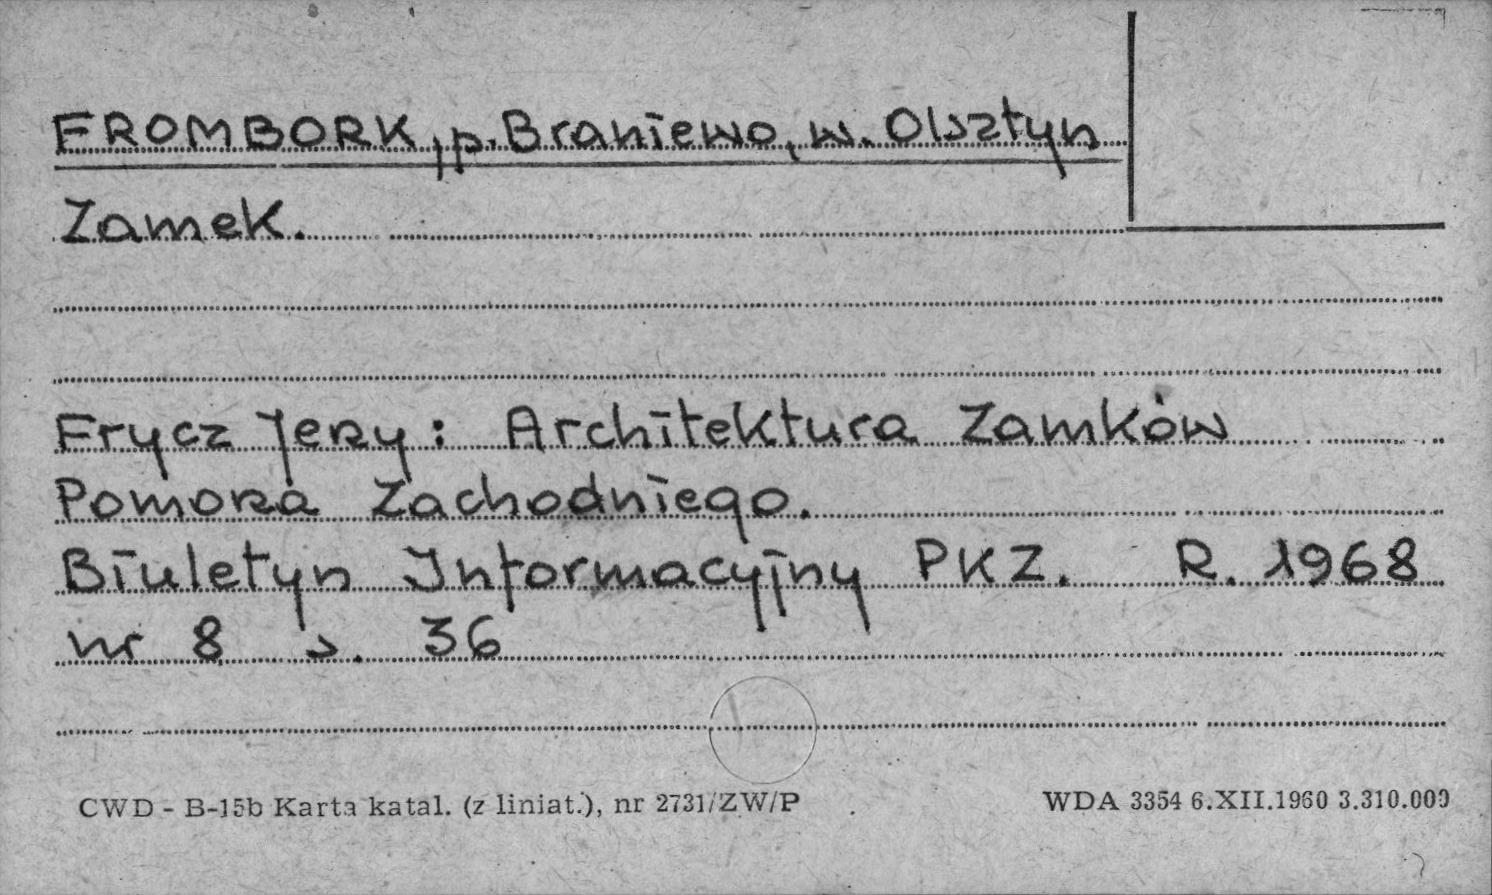 FROMBORK, p. Braniewo, w. Olsztyn
Zamek.
Frycz Jerzy: Architektura Zamków
Pomorza Zachodniego.
Biuletyn Informacyjny PKZ. R. 1968
nr 8 s. 36
CWD - B-15b Karta katal. (z liniat.), nr 2731/ZW/P
WDA 3354 6.XII.1960 3.310.000